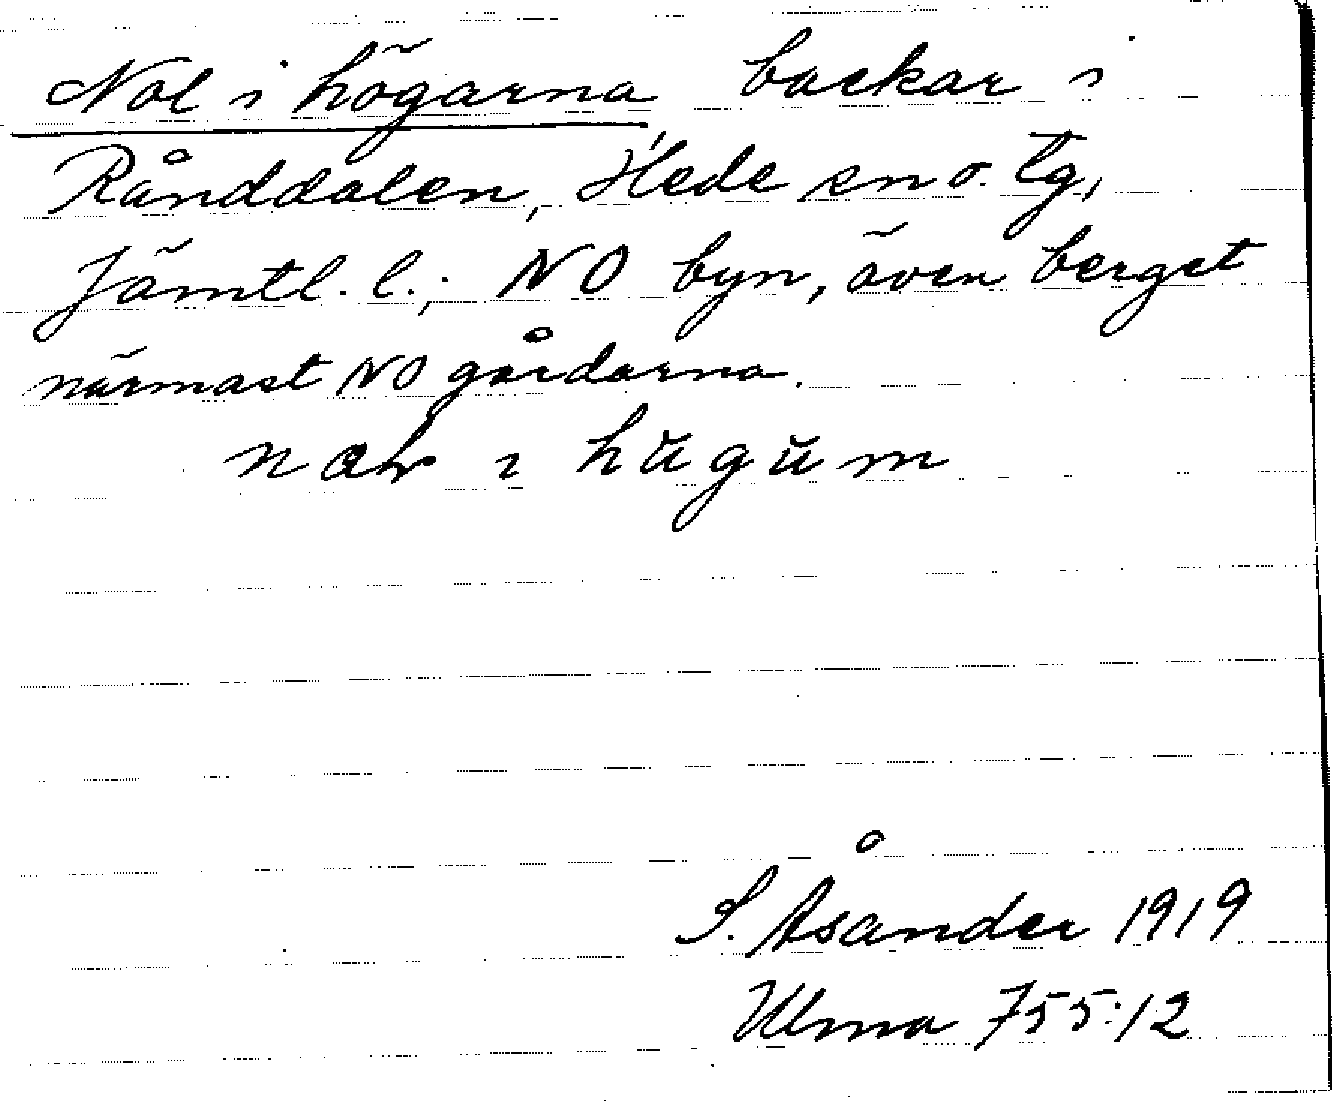 Nol i högarna backar i
Rånddalen, Hede sn o. tg,
Jämtl. l.; NO byn, även berget
närmast NO gårdarna.
i hŭgŭm
S. Åsander 1919
Ulma 755:12